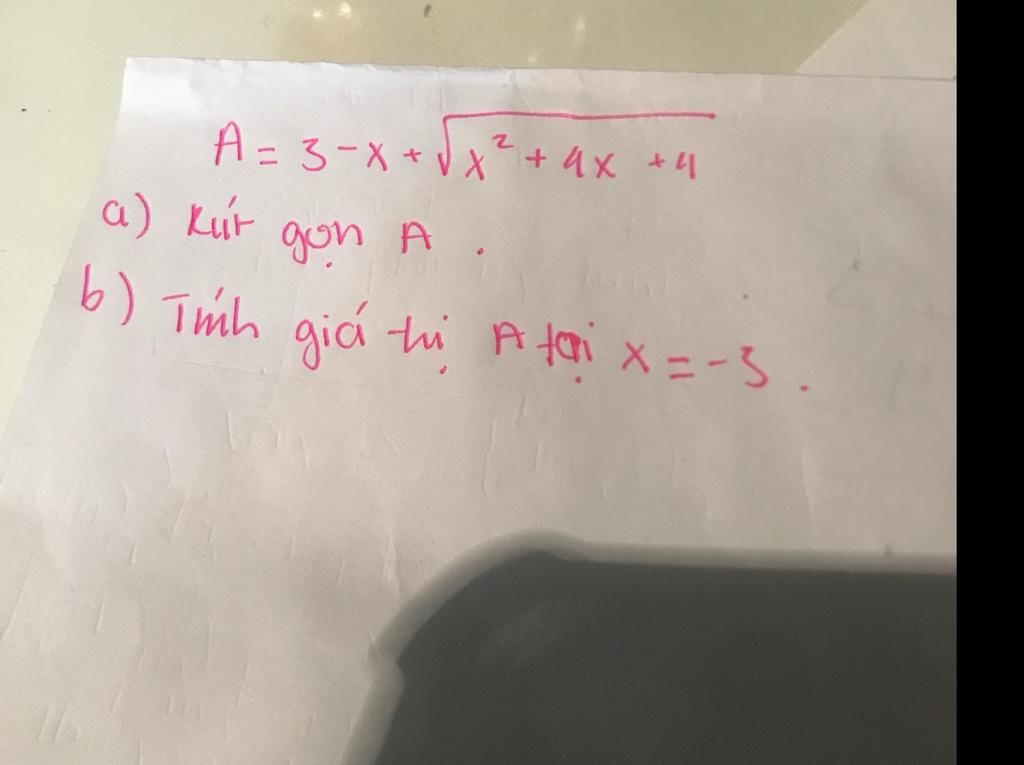 A = 3 - x + √(x² + 4x + 4)
a) Rút gọn A .
b) Tính giá trị A tại x = -3 .